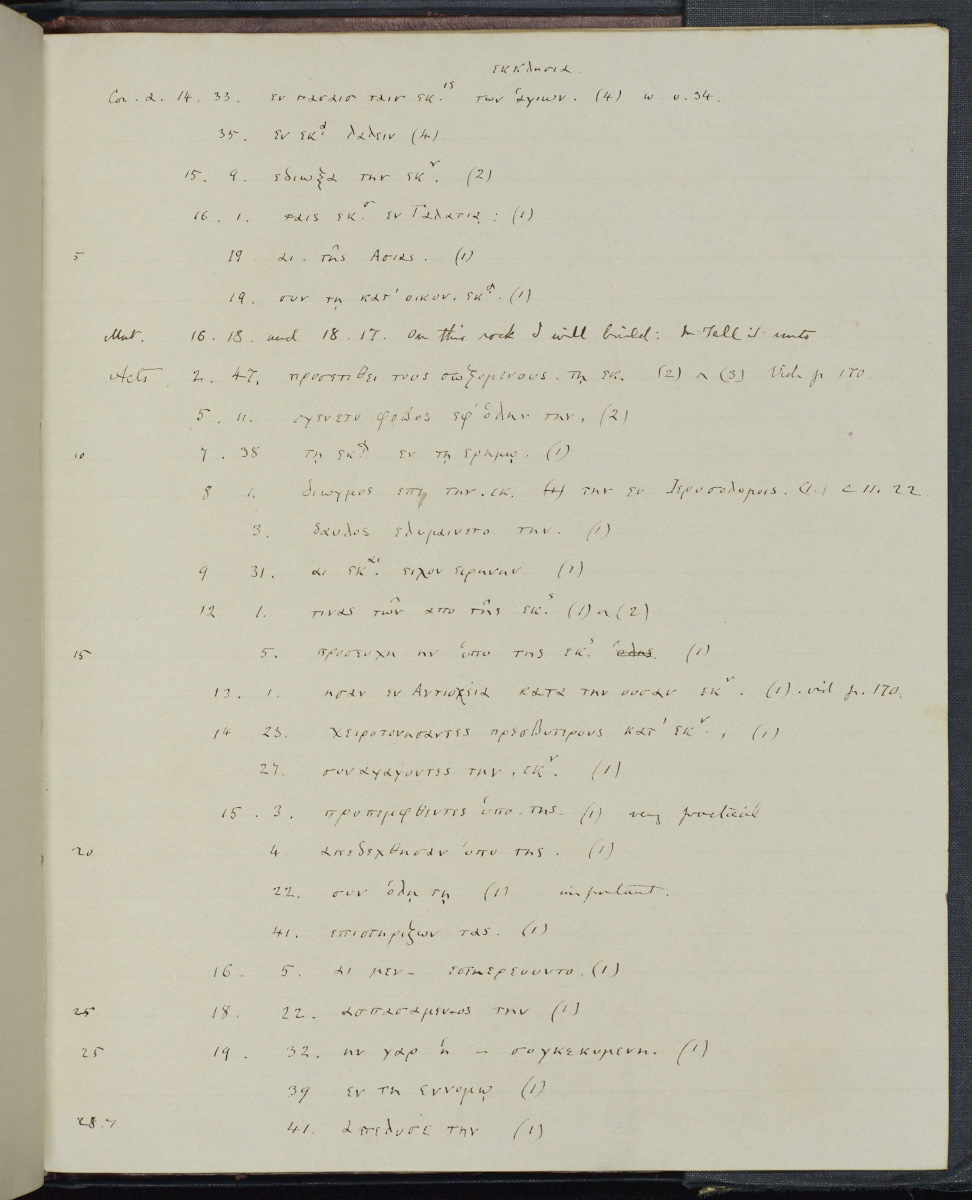 εκκλησια.
Cor. 2. 14. 33. εν πασαισ ταισ εκ.ις των ἁγιων. (4) w v. 34.
35. εν εκᾳ λαλειν (4)
15. 9. εδιωξα την εκν. (2)
16. 1. ταις εκ.σ εν Γαλατιᾳ: (1)
5 19 αι. τῆς Ασιας. (1)
19. συν τῃ κατ' οικον. εκᾳ. (1)
Mat. 16. 18. and 18. 17. On this rock I will build: & Tell it unto
Acts 2. 47. προσετιθει τους σωζομενους. τῃ εκ. (2) or (3) Vide p 170.
5. 11. εγενετο φοβος εφ' ὁλην την. (2)
10 7. 38 τῃ εκᾳ εν τῃ ερημῳ. (1)
8 1. διωγμος επι την. εκ. την εν Ιεροσολυμοις. (1.) 11. 22
3. Σαυλος ελυμαινετο την. (1)
9 31. αι εκαι. ειχον ειρηνην (1)
12 1. τινας τῶν απο τῆς εκ.ς (1) or (2)
15 5. προσευχη ην ὑπο της εκ.ς ὁλης. (1)
13. 1. ησαν εν Αντιοχεια κατα την ουσαν εκν. (1). vid p. 170.
14 23. χειροτονησαντες πρεσβυτερους κατ' εκν., (1)
27. συναγαγοντες την. εκν. (1)
15. 3. προπεμφθεντες ὑπο. της. (1) very practical
20 4. απεδεχθησαν ὑπο της. (1)
22. συν ὁλῃ τῃ (1) important.
41. επιστηριζων τας. (1)
16. 5. αι μεν – εστερεουντο. (1)
25 18. 22. ασπασαμενος την (1)
25 19. 32. ην γαρ ἡ – συγκεκυμενη. (1)
39 εν τη εννομῳ (1)
28.7 41. απελυσε την (1)